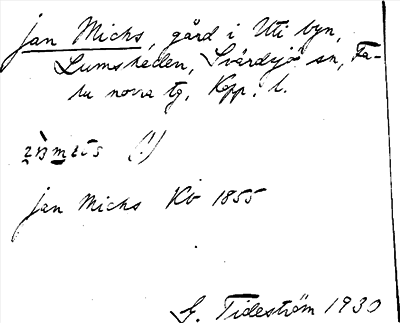 Jan Michs, gård i Uti byn,
Lumsheden, Svärdsjö sn, Fa-
lu norra tg, Kopp. l.
(!)
Jan Michs Kb 1855
G. Tideström 1930